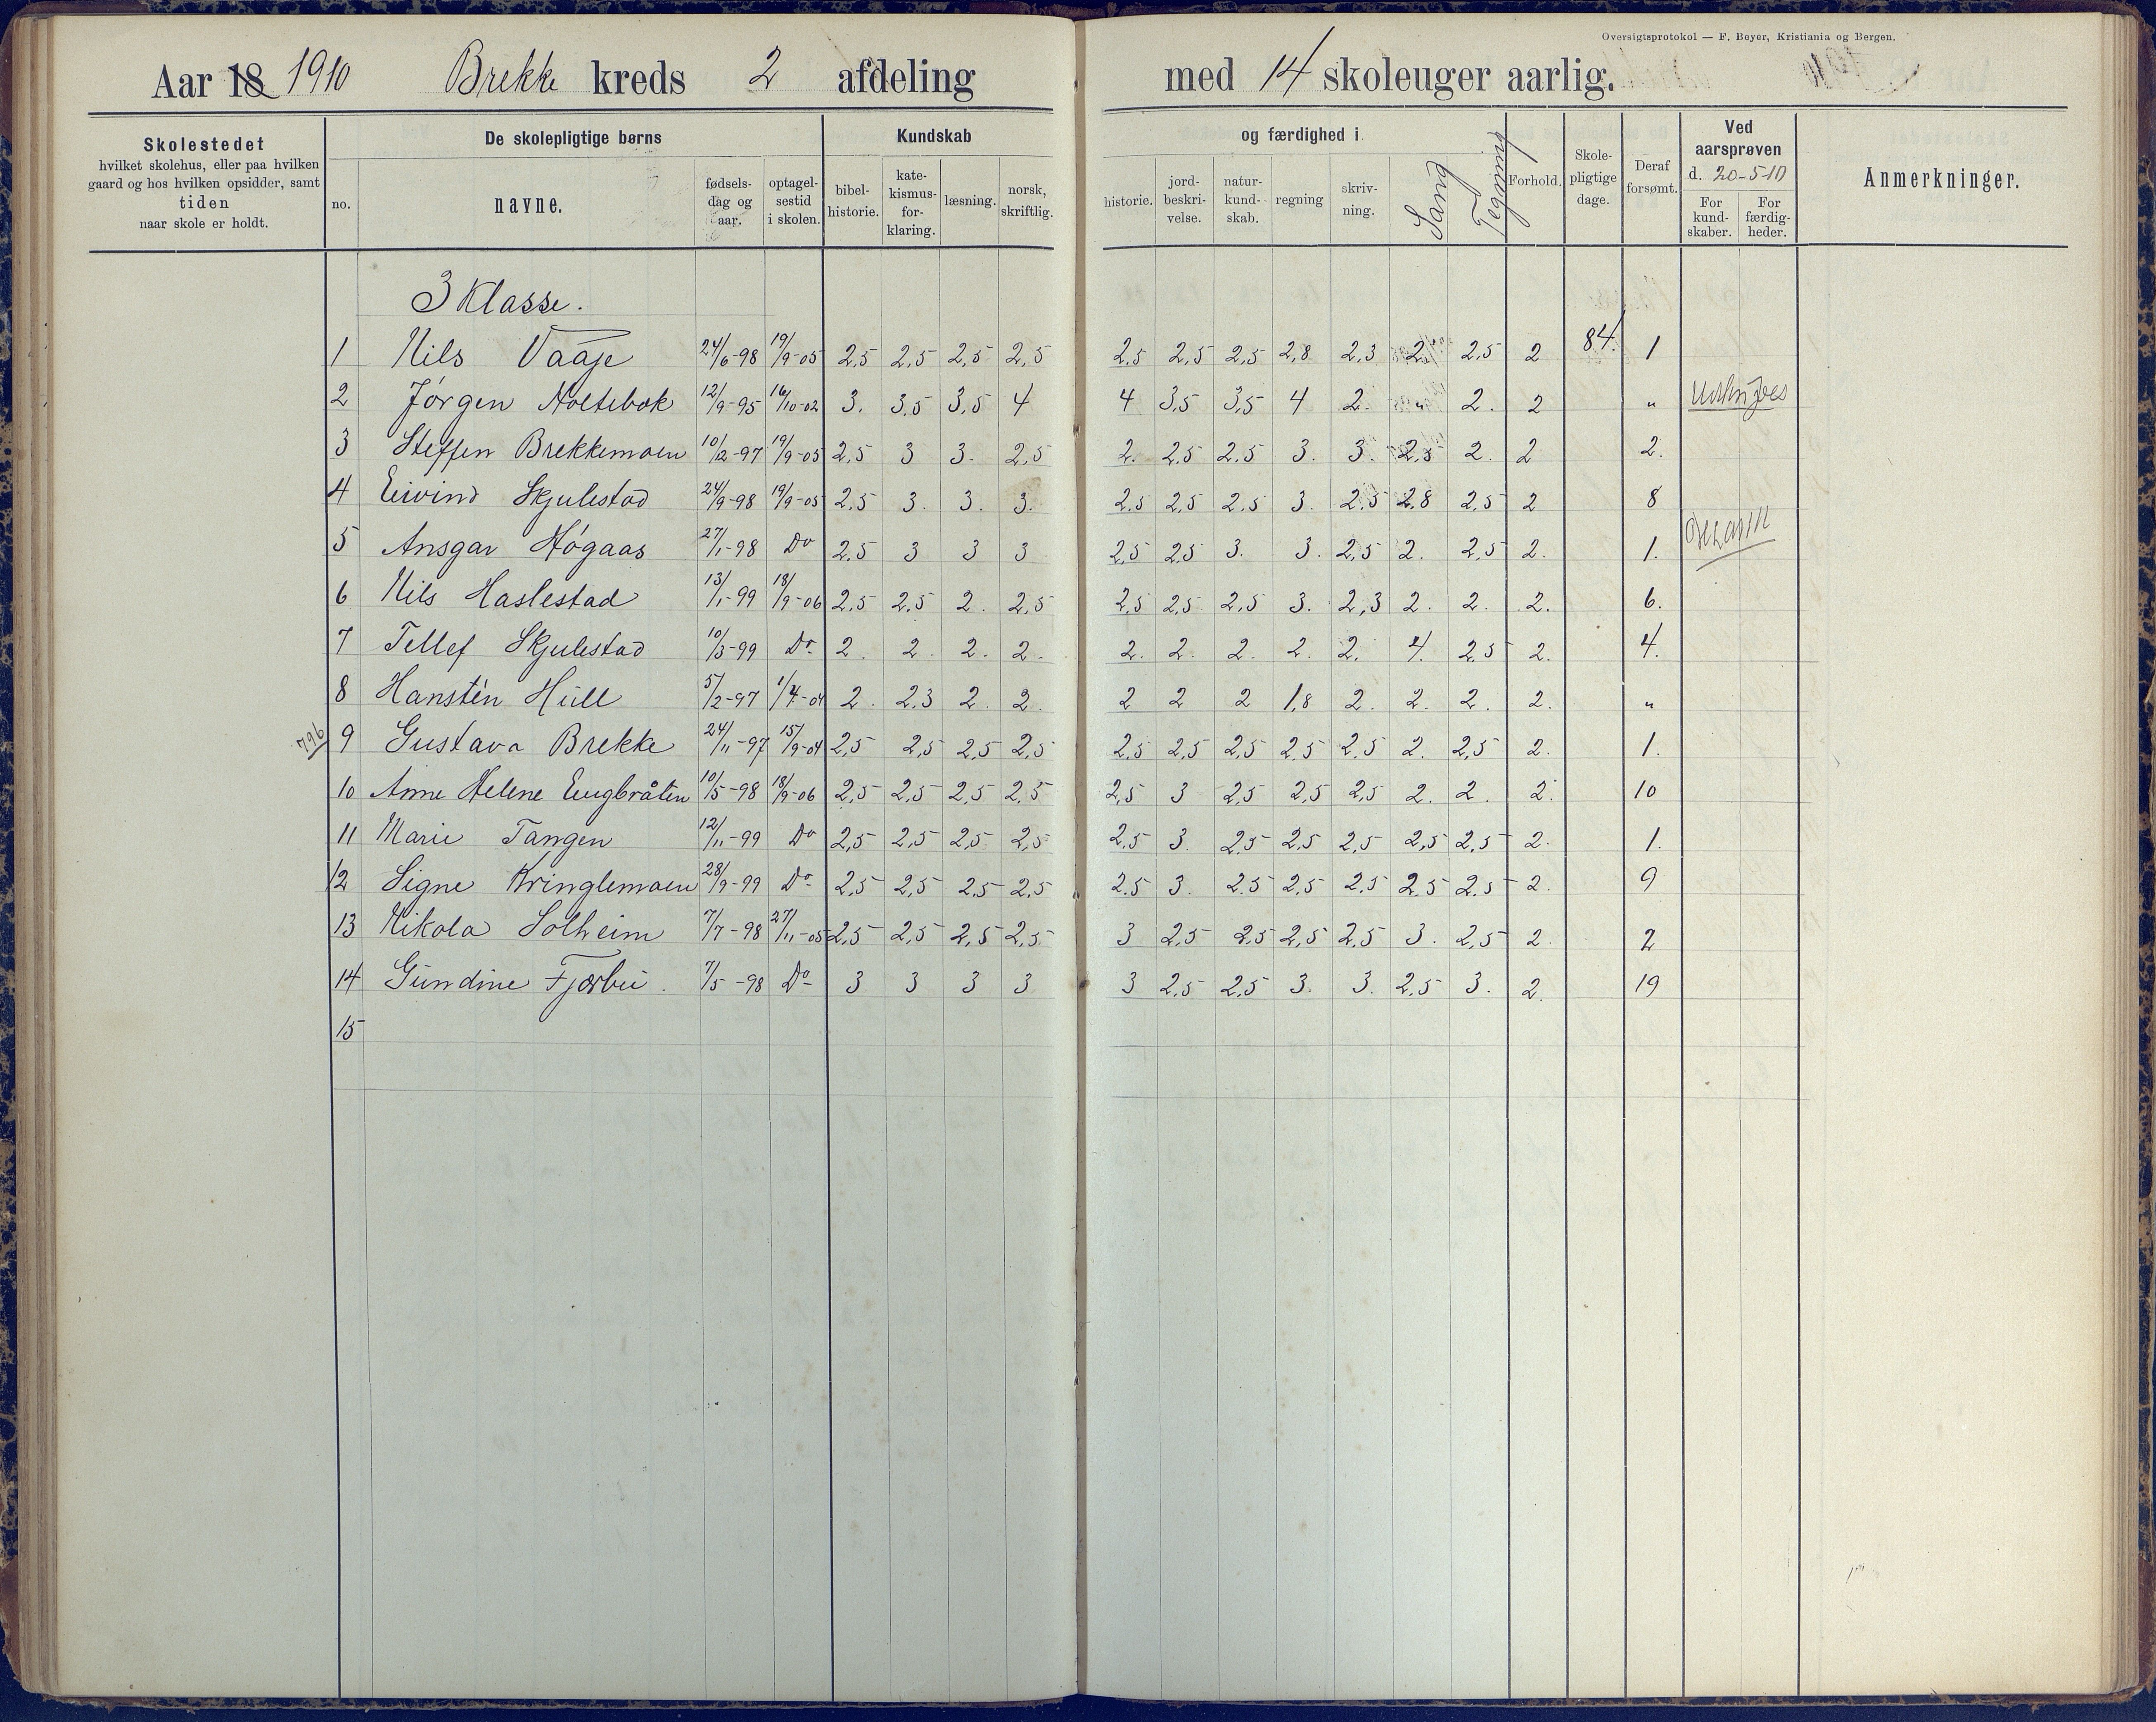 Oversigtsprotokol — F. Beyer, Kristiania og Bergen.
Aar 18 1910 Brekke kreds 2 afdeling med 14 skoleuger aarlig.
Skolestedet hvilket skolehus, eller paa hvilken gaard og hos hvilken opsidder, samt tiden naar skole er holdt.
De skolepligtige børns
no. navne. fødselsdag og aar. optagelsestid i skolen.
Kundskab og færdighed i
bibelhistorie. katekismusforklaring. læsning. norsk, skriftlig. historie. jordbeskrivelse. naturkundskab. regning skrivning. Sang Tegning
Forhold. Skolepligtige dage. Deraf forsømt.
Ved aarsprøven d. 20-5-10
For kundskaber. For færdigheder.
Anmerkninger.
3 Klasse.
1 Nils Vaaje 24/6-98 19/9-05 2,5 2,5 2,5 2,5 2,5 2,5 2,5 2,8 2,3 2 2,5 2 84. 1
2 Jørgen Holtebok 12/9-95 16/10-02 3. 3,5 3,5 4 4 3,5 3,5 4 2. " 2. 2 " Udskrives
3 Steffen Brekkemoen 10/2-97 19/9-05 2,5 3 3. 2,5 2. 2,5 2,5 3. 3. 2,5 2. 2 2.
4 Eivind Skjulestad 24/9-98 19/9-05 2,5 3. 3. 3. 2,5 2,5 2,5 3. 2,5 2,8 2,5 2 8
5 Ansgar Høgaas 27/1-98 Do 2,5 3 3 3 2,5 2,5 3. 3. 2,5 2. 2,5 2. 1.
6 Nils Haslestad 13/1-99 18/9-06 2,5 2,5 2. 2,5 2,5 2,5 2,5 3. 2,3 2. 2. 2. 6.
7 Tellef Skjulestad 10/3-99 Do 2. 2. 2. 2. 2. 2. 2. 2. 2. 4. 2,5 2. 4.
8 Hanstén Hull 5/2-97 1/4-04 2. 2,3 2. 2. 2 2 2 1,8 2. 2. 2. 2. "
796
9 Gustava Brekke 24/11-97 15/9-04 2,5 2,5 2,5 2,5 2,5 2,5 2,5 2,5 2,5 2. 2,5 2. 1.
10 Anne Helene Eugbråten 10/5-98 18/9-06 2,5 2,5 2,5 2,5 2,5 3 2,5 2,5 2,5 2. 2. 2. 10
11 Marie Tangen 12/11-99 Do 2,5 2,5 2,5 2,5 2,5 3. 2,5 2,5 2,5 2,5 2,5 2. 1.
12 Signe Kringlemoen 28/9-99 Do 2,5 2,5 2,5 2,5 2,5 3. 2,5 2,5 2,5 2,5 2,5 2. 9
13 Nikola Solheim 7/7-98 27/11-05 2,5 2,5 2,5 2,5 3 2,5 2,5 2,5 2,5 3. 2,5 2. 2
14 Gundine Fjærbu. 7/5-98 Do 3 3 3 3 3 2,5 2,5 3. 3. 2,5 3. 2. 19
15